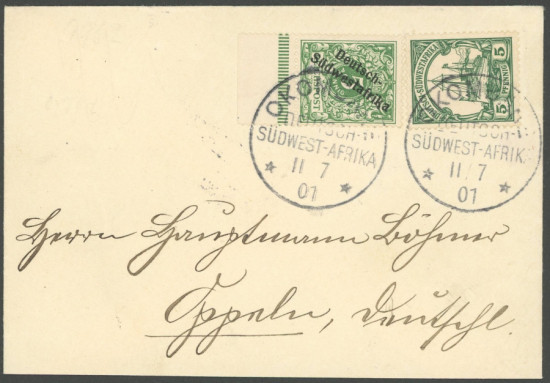 Deutsch-
Südwestafrika
DEUTSCH-SÜDWESTAFRIKA
5 PFENNIG 5
SÜDWEST-AFRIKA
11 7
01
SÜDWEST-AFRIKA
11/7
01
Herrn Hauptmann Böhmer
Oppeln, Deutschl.